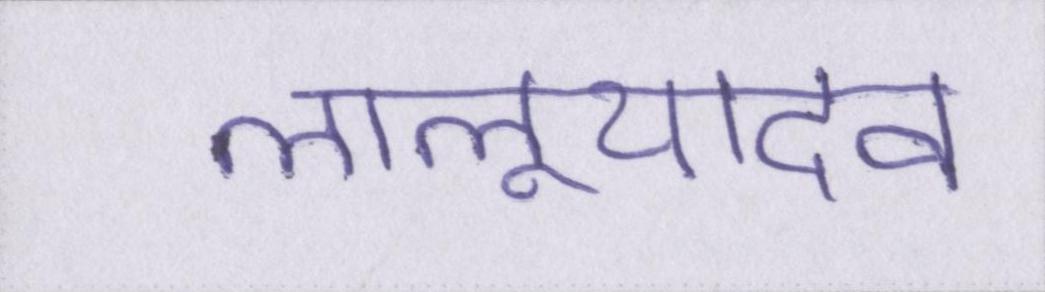 लालूयादव